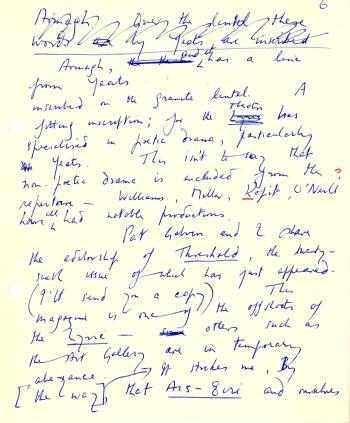 6
Armagh, Over the lintel these
words by Yeats are inscribed
Armagh, has a line
from Yeats
inscribed on the granite lintel. A
fitting inscription; for the Theatre has
specialised in poetic drama, particularly
Yeats. This isn't to say that
non-poetic drama is excluded from the
repertoire — Williams, Miller, Kopit, O'Neill ?
have all had notable productions.
Pat Galvin and I share
the editorship of Threshold, the twenty-
issue of which has just appeared.
(I'll send you a copy). This
magazine is one of the offshoots of
the Lyric — others such as
the Art Gallery are in temporary
abeyance. It strikes me, by
[the way] that Ais-Eiri and ourselves